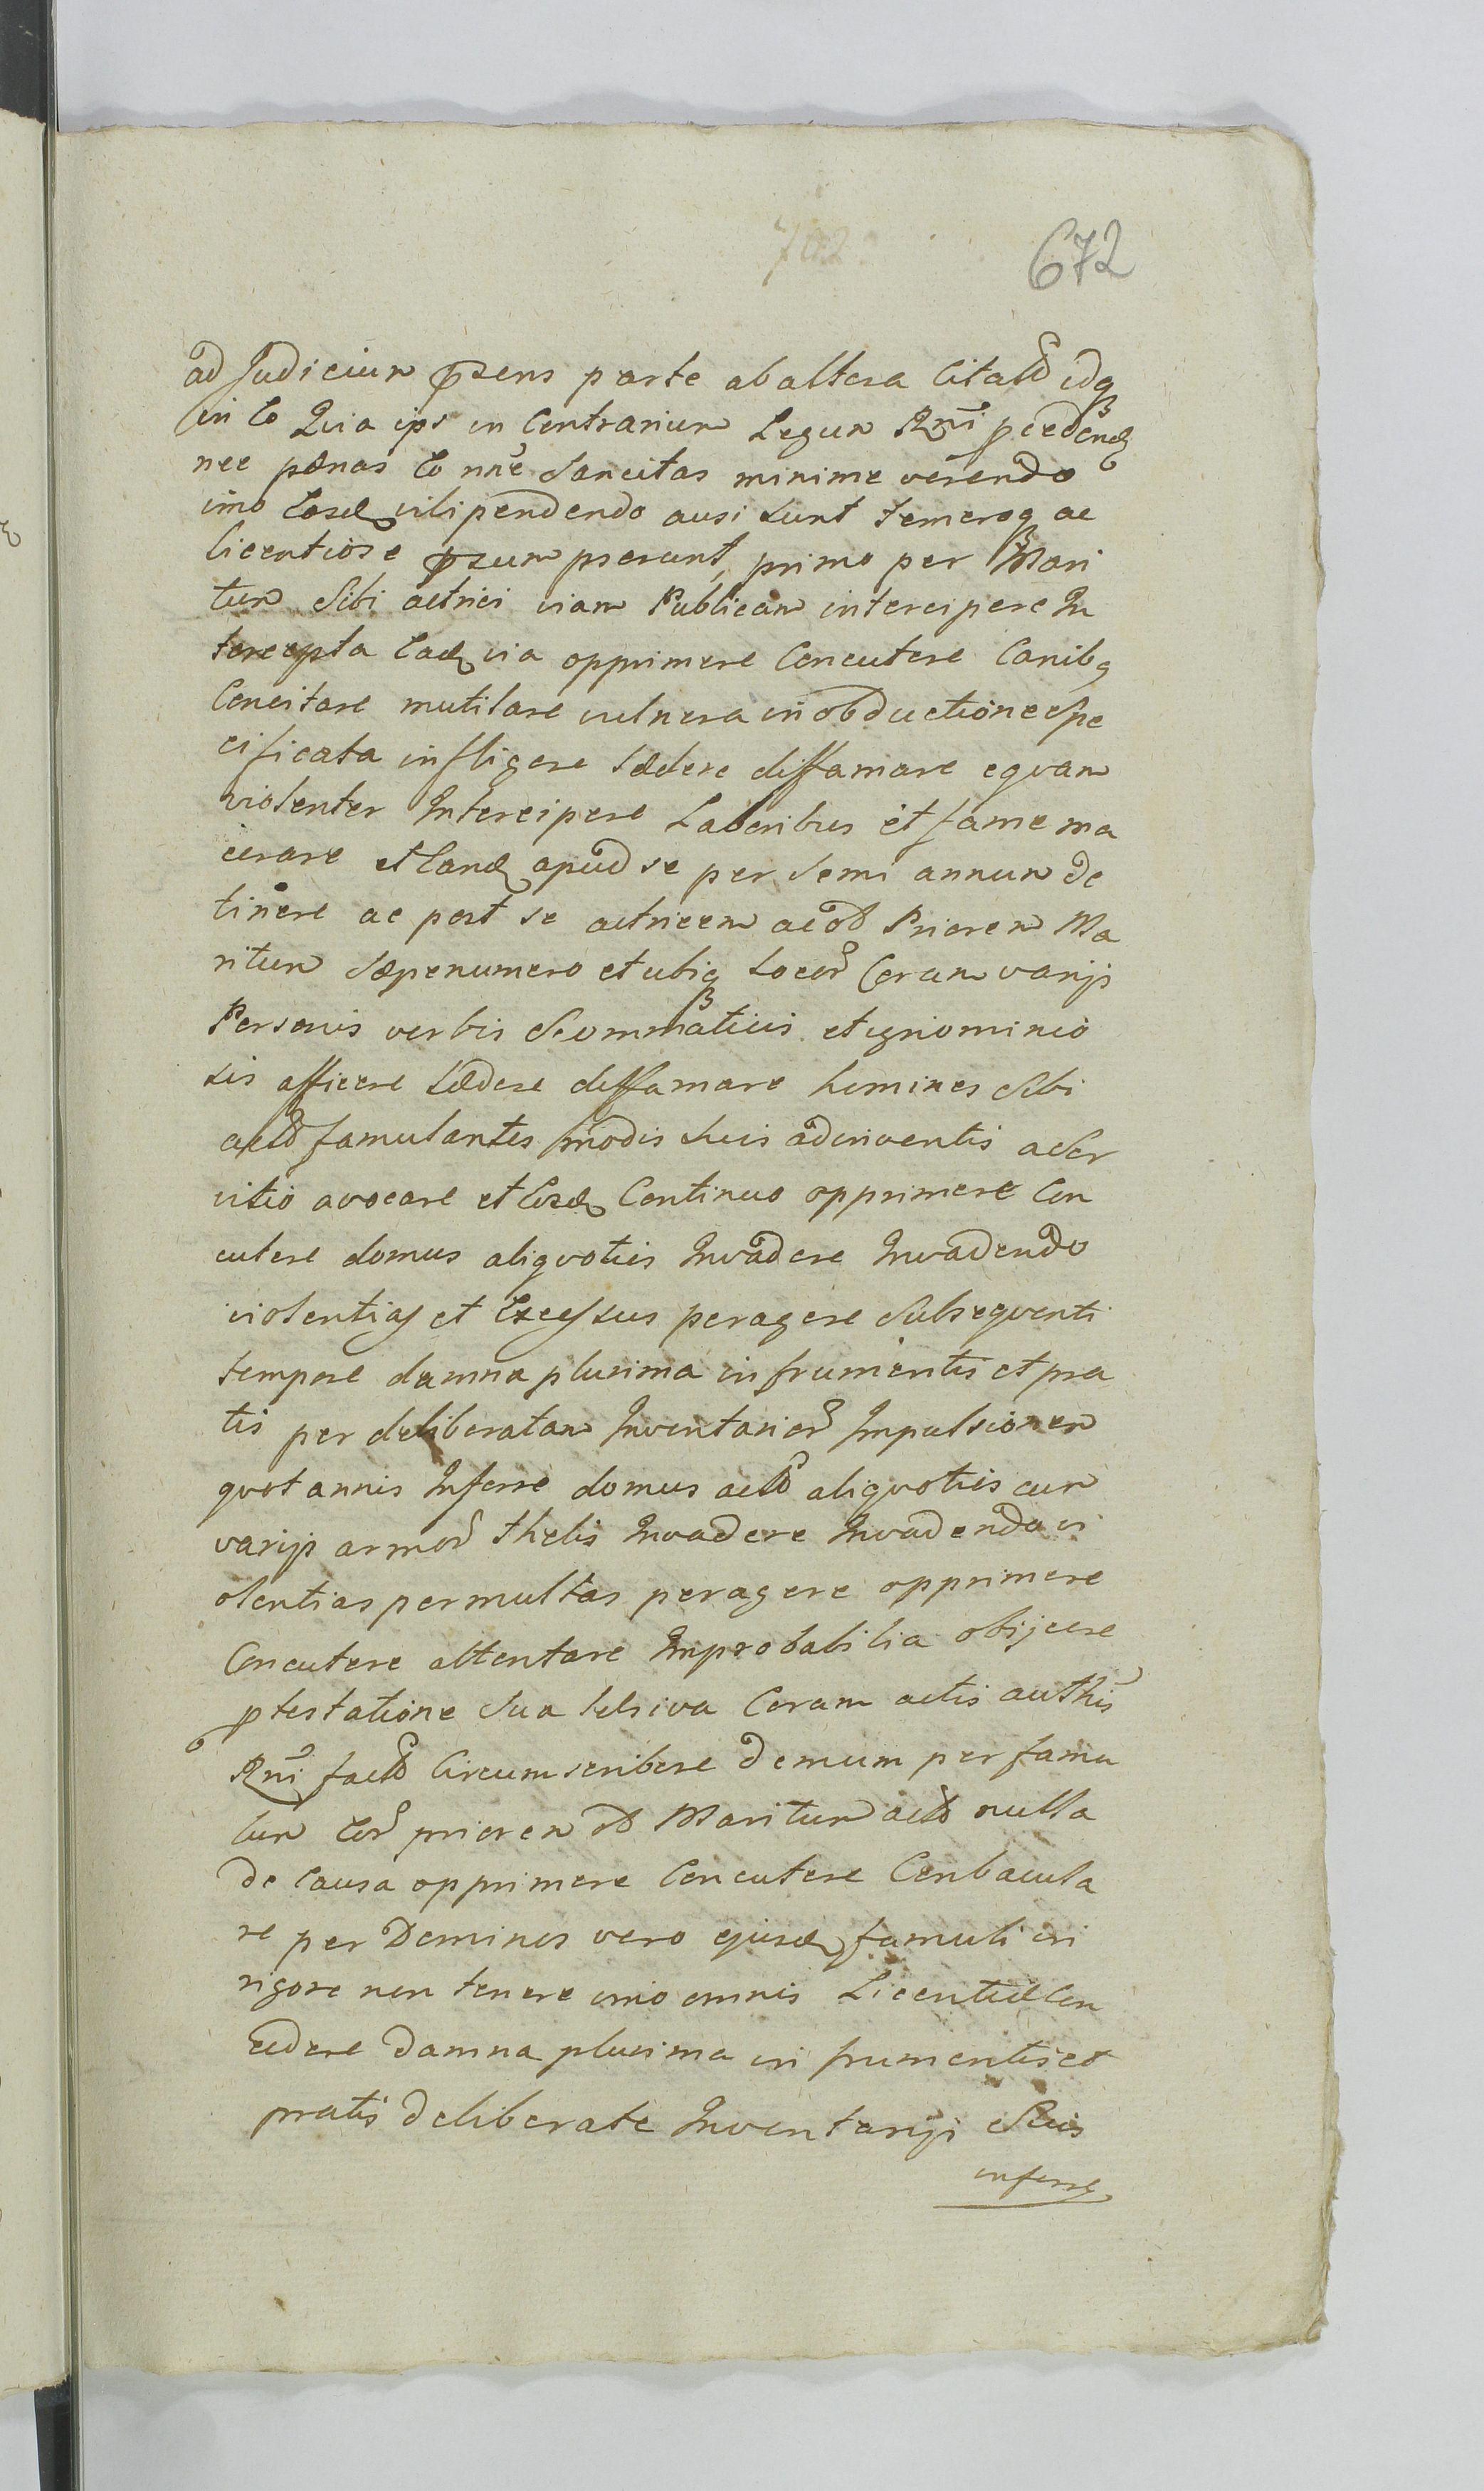 672
ad Judicium præsens parte ab altera Citator idq
in eo Quia ipsi in Contrarium Legum Rni pcedendo
nec pænas eo nne Sancitas minime verendo
imo Easd vilipendendo ausi sunt temereq ac
licentiose præsumpserunt, primo per Mari
tum Sibi actrici viam Publicam intercipere In
tercepta Ead via opprimere Concutere Canibq
Concitare mutilare vulnera in obductione Spe
cificata infligere Lædere diffamare equam
violenter Intercipere Laboribus et fame ma
cerare et Eand apud se per Semi annum de
tinere ac post se actricem ac od Priorem Ma
ritum Sæpenumero et ubiq Locor Coram varijs
Personis verbis Scommaticis et ignominio
sis afficere Lædere diffamare homines Sibi
actor famulantes modis Suis adinventis a Ser
vitio avocare et Eosd Continuo opprimere Con
cutere domus aliquoties Invadere Invadendo
violentias et Excessus peragere Subsequenti
tempore damna plurima in frumentis et pra
tis per deliberatam Inventarior Impulsionem
quotannis Inferre domus actor aliquoties cum
varijs armor thelis Invadere Invadendo vi
olentias permultas peragere opprimere
Concutere attentare Improbabilia obijcere
ptestatione Sua Lelsiva Coram actis authis
Rni factor Circumscribere demum per famu
lum Eor priorem od Maritum actor nulla
de Causa opprimere Concutere Conbacula
re per Dominos vero ejusd famuli in
rigore non tenere imo omnis Licentiæ Con
cedere damna plurima in frumentis et
pratis deliberate Inventarijs Suis
inferre